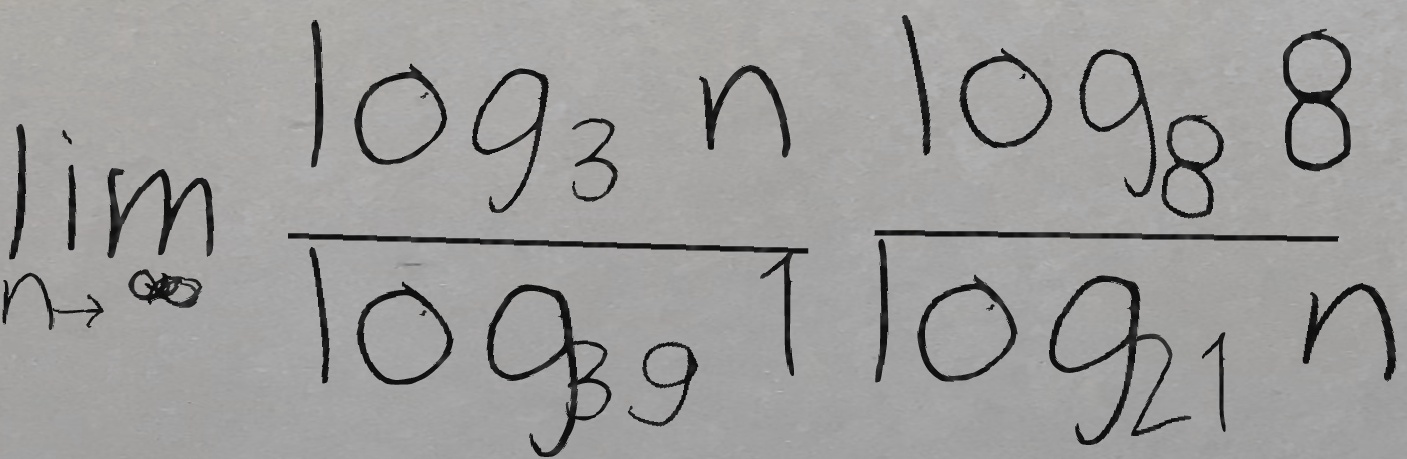 lim n→∞ \frac{log_3 n}{log_{39} 1} \frac{log_8 8}{log_{21} n}